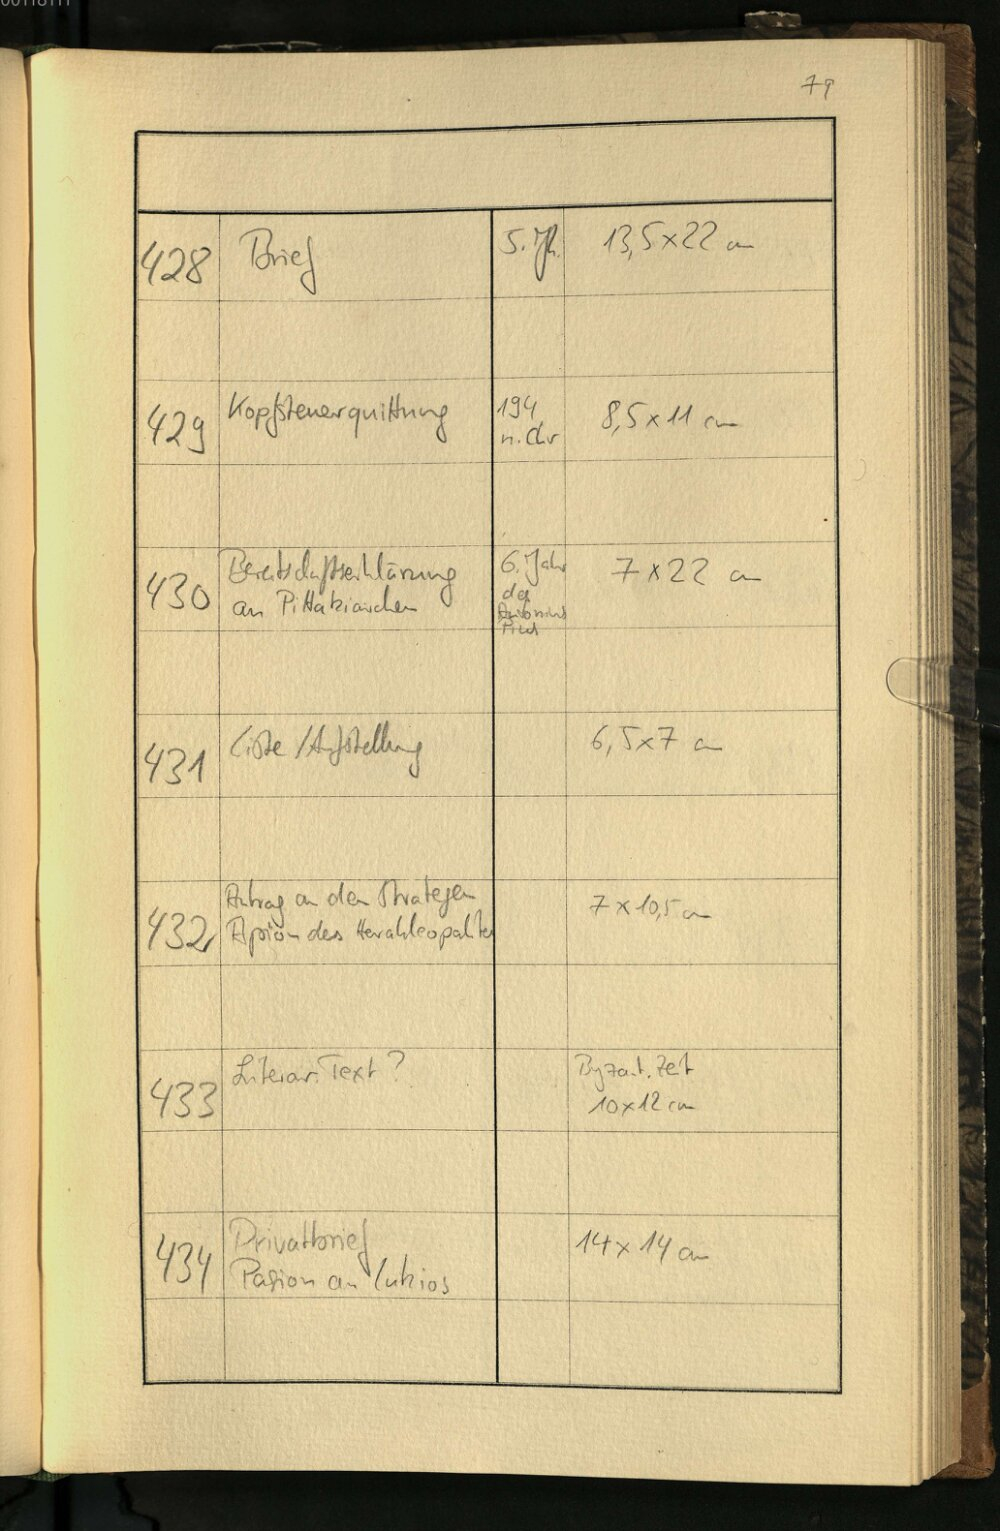 79
428 Brief 5. Jh. 13,5 x 22 cm
429 Kopfsteuerquittung 194 n. Chr 8,5 x 11 cm
430 Bereitschaftserklärung 6. Jahr 7 x 22 cm
an Pittakiarchen des
Antoninus
Pius
431 Liste / Aufstellung 6,5 x 7 cm
432 Antrag an den Strategen 7 x 10,5 cm
Apion des Herakleopolites
433 Literar. Text? Byzant. Zeit
10 x 12 cm
434 Privatbrief 14 x 14 cm
Pasion an Lukios